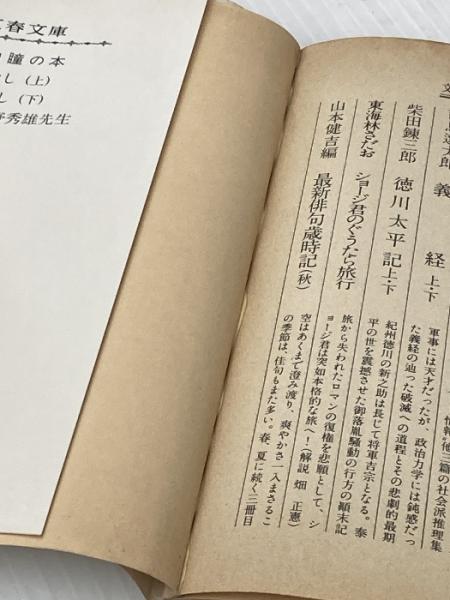 春文庫
瞳の本
し(上)
し(下)
秀雄先生
文
義経 上・下
軍事には天才だったが、政治力学には鈍感だっ
た義経の辿った破滅への道程とその悲劇的最期
柴田錬三郎
徳川太平記 上・下
紀州徳川の新之助は長じて将軍吉宗となる。泰
平の世を震撼させた御落胤騒動の行方の顛末記
東海林さだお
ショージ君のぐうたら旅行
旅から失われたロマンの復権を悲願として、シ
ョージ君は突如本格的な旅へ!(解説 畑 正憲)
山本健吉編
最新俳句歳時記(秋)
空はあくまで澄み渡り、爽やかさ一入まさるこ
の季節は、佳句もまた多い。春、夏に続く三冊目